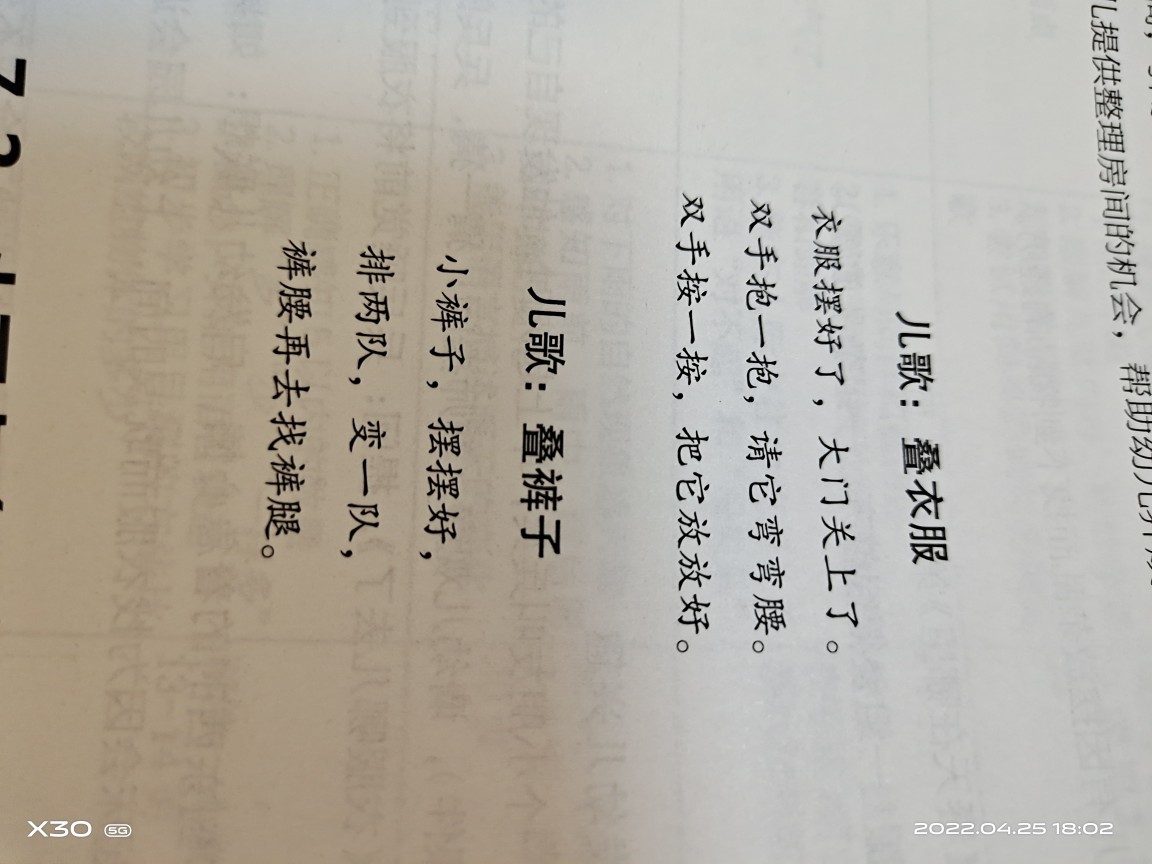 儿提供整理房间的机会，帮助幼儿养成
儿歌：叠衣服
衣服摆好了，大门关上了。
双手抱一抱，请它弯弯腰。
双手按一按，把它放放好。
儿歌：叠裤子
小裤子，摆摆好，
排两队，变一队，
裤腰再去找裤腿。
X30 5G
2022.04.25 18:02